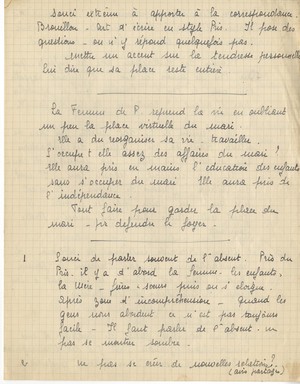 Souci extrême à apporter à la correspondance
Brouillon - art d'écrire en style Pris. Il pose des
questions - on n'y répond quelquefois pas.
mettre un accent sur la tendresse personnelle
lui dire que sa place reste entière.
La Femme de P. reprend la vie en oubliant
un peu la place virtuelle du mari.
Elle a du reorganiser sa vie. travailler.
S'occupe t elle assez des affaires du mari ?
Elle aura pris en mains l'education des enfants
sans s'occuper du mari Elle aura pris de
l'indépendance.
Tout faire pour garder la place du
mari - pr defendre le foyer.
1 Souci de parler souvent de l'absent. Près du
Pris. il y a d'abord la femme. les enfants,
la Mère - frères - soeurs puis on s'éloigne.
après zone d'incompréhension - Quand les
gens nous abordent ce n'est pas toujours
facile - Il faut parler de l'absent - ne
pas se montrer sombre.
2 ne pas se créer de nouvelles relations ?
(sans partager)